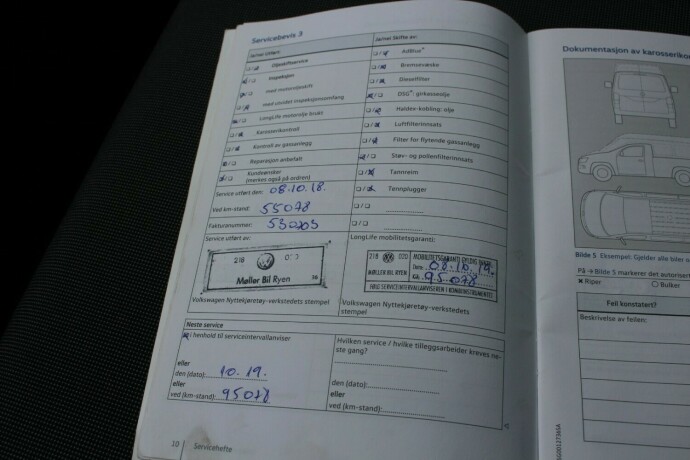 Servicebevis 3
Ja/nei Utført:
Ja/nei Skifte av:
Oljeskiftservice
Inspeksjon
med motoroljeskift
med utvidet inspeksjonsomfang
LongLife motorolje brukt
Karosserikontroll
Kontroll av gassanlegg
Reparasjon anbefalt
Kundeønsker
(merkes også på ordren)
AdBlue®
Bremsevæske
Dieselfilter
DSG®: girkasseolje
Haldex-kobling: olje
Luftfilterinnsats
Filter for flytende gassanlegg
Støv- og pollenfilterinnsats
Tannreim
Tennplugger
Service utført den: 08.10.18.
Ved km-stand: 55078
Fakturanummer: 530203
Service utført av:
218
Møller Bil Ryen
Volkswagen Nyttekjøretøy-verkstedets stempel
LongLife mobilitetsgaranti:
218 020 MOBILITETSGARANTI GYLDIG
MØLLER BIL RYEN
Dato 08.10.19.
Km. 95.078
IFLG SERVICEINTERVALLANVISEREN I KOMBIINSTRUMENTET
Volkswagen Nyttekjøretøy-verkstedets
stempel
Neste service
i henhold til serviceintervallanviser
eller
den (dato): 10.19.
eller
ved (km-stand): 95078
Hvilken service / hvilke tilleggsarbeider kreves ne-
ste gang?
den (dato):
eller
ved (km-stand):
10 Servicehefte
Dokumentasjon av karosserikon
Bilde 5 Eksempel: Gjelder alle biler
På → Bilde 5 markerer det autoriser
✖ Riper
○ Bulker
Feil konstatert?
Beskrivelse av feilen: